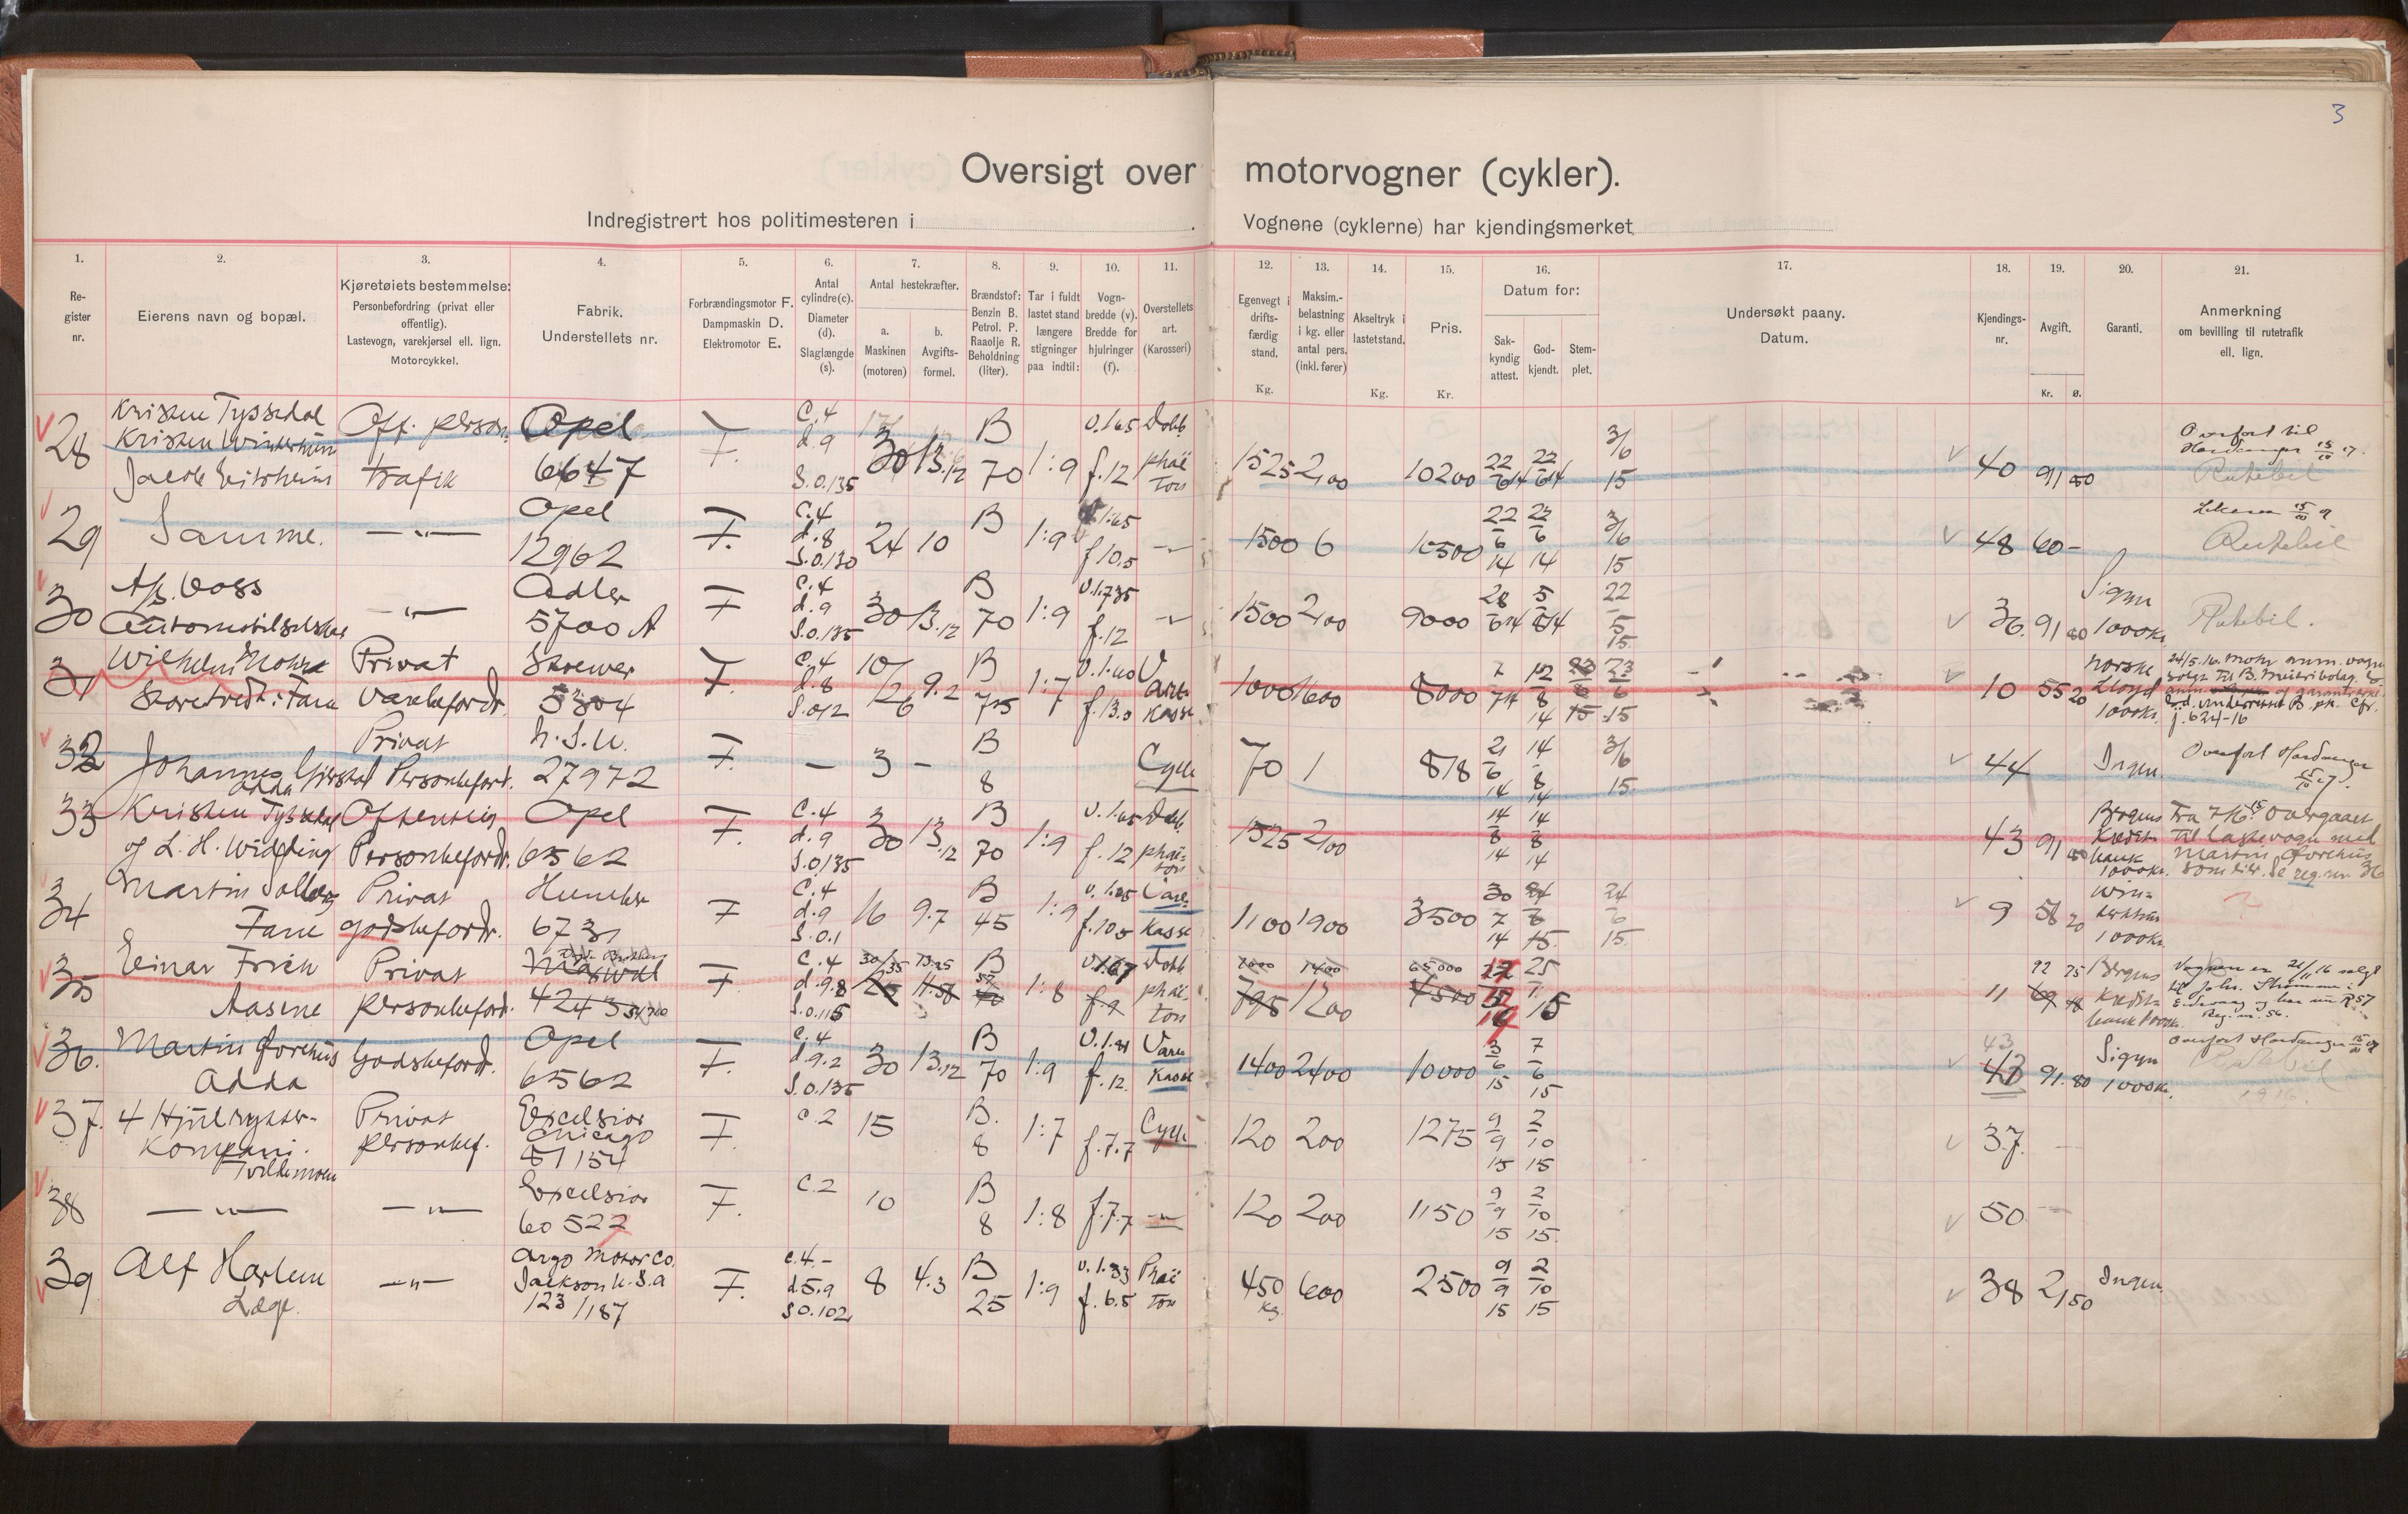 3
Oversigt over motorvogner (cykler).
Indregistrert hos politimesteren i
Vognene (cyklerne) har kjendingsmerket
1.
Re-
gister
nr.
2.
Eierens navn og bopæl.
3.
Kjøretøiets bestemmelse:
Personbefordring (privat eller
offentlig).
Lastevogn, varekjørsel ell. lign.
Motorcykkel.
4.
Fabrik.
Understellets nr.
5.
Forbrændingsmotor F.
Dampmaskin D.
Elektromotor E.
6.
Antal
cylindre(c).
Diameter
(d).
Slaglængde
(s).
7.
Antal hestekræfter.
a.
Maskinen
(motoren)
b.
Avgifts-
formel.
8.
Brændstof:
Benzin B.
Petrol. P.
Raaolje R.
Beholdning
(liter).
9.
Tar i fuldt
lastet stand
længere
stigninger
paa indtil:
10.
Vogn-
bredde (v).
Bredde for
hjulringer
(f).
11.
Overstellets
art.
(Karosseri)
12.
Egenvegt i
drifts-
færdig
stand.
Kg.
13.
Maksim.-
belastning
i kg. eller
antal pers.
(inkl. fører)
14.
Akseltryk i
lastetstand.
Kg.
15.
Pris.
Kr.
16.
Datum for:
Sak-
kyndig
attest.
God-
kjendt.
Stem-
plet.
17.
Undersøkt paany.
Datum.
18.
Kjendings-
nr.
19.
Avgift.
Kr. Ø.
20.
Garanti.
21.
Anmerkning
om bevilling til rutetrafik
ell. lign.
28
Kristen Tyssedal
Off. person
trafik
Opel
6647
F.
C.4
d.9
S.0.135
30
13.12
B
70
1:9
v.1.65
f.12
Dobb
phaë
ton
1525
2100
10200
22 22
6 14 6 14
3/6
15
40
91 80
Overført til
Rutebil
29
Samme.
—"—
Opel
12962
F.
C.4
d.8
S.0.130
24
10
B
1:9
f 10.5
—"—
1500
6
10500
22 22
6 6
14 14
3/6
15
48
60 -
Rutebil
30
A/s. Voss
Automobilselskap
—"—
Adler
5700 A
F
C.4
d.9
S.0.135
30
13.12
B
70
1:9
v.1.735
f.12
—"—
1500
2100
9000
28 5
6 14 8 14
22
5
15
36.
91 80
Sigyn
1000 Kr.
Rutebil.
31
Wilhelm Mohr
Fana
Privat
Varebefordr.
Stoewer
5304
F.
C.4
d.8
S.012
10/26
9.2
B
75
1:7
f.13.0
Vare
Kasse
1000
1600
8000
7 12 23
7 14 8 6
14 15
23
6
15
10
55 20
Norske
Lloyd
1000 Kr.
j. 624-16
32
Johannes
Odda
Privat
Personbeford.
N.S.U.
27972
F.
—
3
-
B
8
Cycle
70
1
818
21 14
6 8
14 14
3/6
15.
44
Ingen.
Overført Hardanger
33
Kristen Tyssedal
og L. H. Widding
Offentlig
Personbefordr.
Opel
6562
F.
C.4
d.9
S.0.135
30
13.12
B
70
1:9
v.1.65
f.12
Dob.
phaë-
ton
1525
2100
14 14
8 8
14 14
43
91 80
Bergens
Kredit-
bank
1000 Kr.
Fra 7/6 15 overgaaet
til lastevogn med
Martin
som eier. Se reg. nr 36
34
Martin
Fane
Privat
godsbefordr.
Humber
6731
F
C.4
d.9
S.0.1
16
9.7
B
45
1:9
v.1.25
f.10.5
Vare
Kasse
1100
1900
3500
30 24
7 6
14 15.
24
6
15.
9
58 20
1000 Kr.
?
35
Einar Frich
Aasene
Privat
personbeford.
Maxwell
4243
F.
C.4
d.9.8
S.0.115
30/35
13.25
25
11.58
B
1:8
v.1.67
f.9
Dobb
phaë-
ton
795
1200
4500
25
15
11
92 75
Bergens
Kredit-
bank 1000 Kr.
Vognen er 21/11 16 solgt
til Johs.
Reg. nr. 56.
36.
Martin
Odda
Godsbeford.
Opel
6562
F.
C.4
d.9.2
S.0.135
30
13.12
B
70
1:9
v.1.81
f.12.
Vare
Kasse
1400
2400
10000
3 7
6 6
15 15
43
43
91.80
Sigyn
1000 Kr.
Overført Hardanger
Rutebil
1916.
37.
4 Hjulrytter-
Kompani.
Tvildemoen
Privat
personbef.
Excelsior
Chicago
81154
F.
C.2
15
B.
8
1:7
f.7.7
Cycle
120
200
1275
9 2
9 10
15 15
37.
—
38
—"—
—"—
Excelsior
60522
F.
C.2
10
B
8
1:8
f.7.7
—"—
120
200
1150
9 2
9 10
15 15.
50
—
39
Alf Harlem
Læge.
—"—
Argo Motor Co.
Jackson U.S.A
123/187
F.
c.4.-
d.5.9
S 0.102
8
4.3
B
25
1:9
v.1.33
f.6.5
Phaë
ton
450
Kg.
600
2500
9 2
9 10
15 15
38
21,50
Ingen.